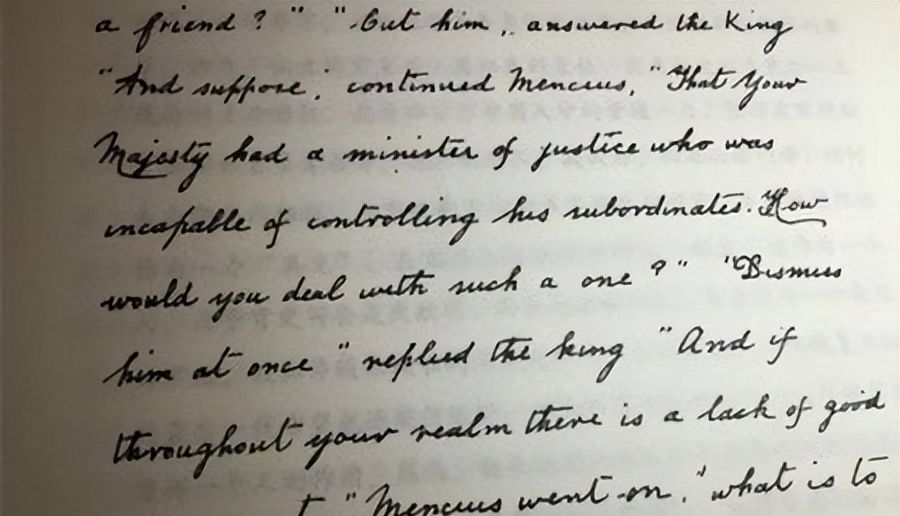 a friend?" "Cut him, answered the King
"And suppose", continued Mencius, "That Your
Majesty had a minister of justice who was
incapable of controlling his subordinates. How
would you deal with such a one?" "Dismiss
him at once" replied the king "And if
throughout your realm there is a lack of good
" Mencius went on, "what is to